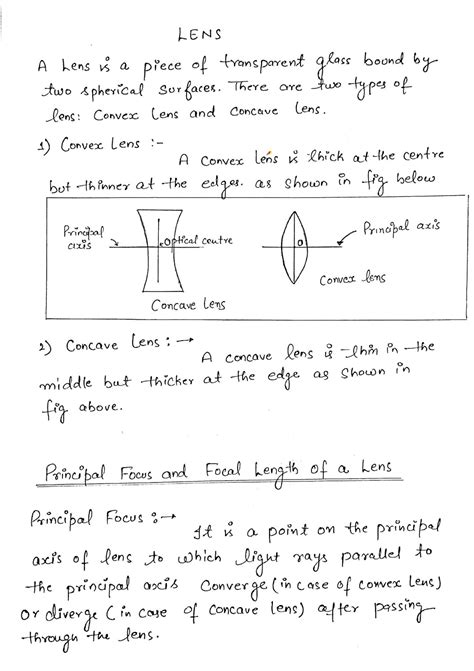 LENS
A Lens is a piece of transparent glass bound by
two spherical surfaces. There are two types of
lens: Convex Lens and Concave Lens.
1) Convex Lens :-
A convex lens is thick at the centre
but thinner at the edges. as shown in fig below
Principal axis
Optical centre
Concave Lens
O
Principal axis
Convex lens
2) Concave Lens : →
A concave lens is thin in the
middle but thicker at the edge as shown in
fig above.
Principal Focus and Focal Length of a Lens
Principal Focus : →
It is a point on the principal
axis of lens to which light rays parallel to
the principal axis converge (in case of convex lens)
or diverge (in case of concave lens) after passing
through the lens.